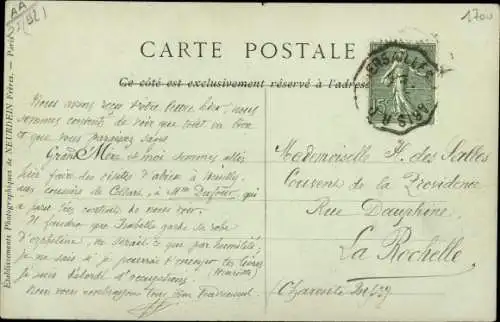 AA
1700
CARTE POSTALE
Ce côté est exclusivement réservé à l'adresse
Etablissements Photographiques de NEURDEIN Frères. — Paris
VERSAILLES
PARIS R.
15
Nous avons reçu votre lettre hier, nous
sommes contents de voir que tout va bien
et que vous paraissez
Grand Mère et moi sommes allés
hier faire des visites d'adieu à Neuilly
aux cousins de à Mme Dufour qui
a paru très contente de nous voir.
Il faudra que Isabelle garde sa robe
d'orpheline, ne que par humilité.
Je ne sais si je pourrais t'envoyer tes livres
(Henriette)
Je suis d'occupations.
Nous vous embrassons tous bien tendrement.
Mademoiselle H. des Salles
Couvent de la Providence
Rue Dauphine
La Rochelle
Charente Infre